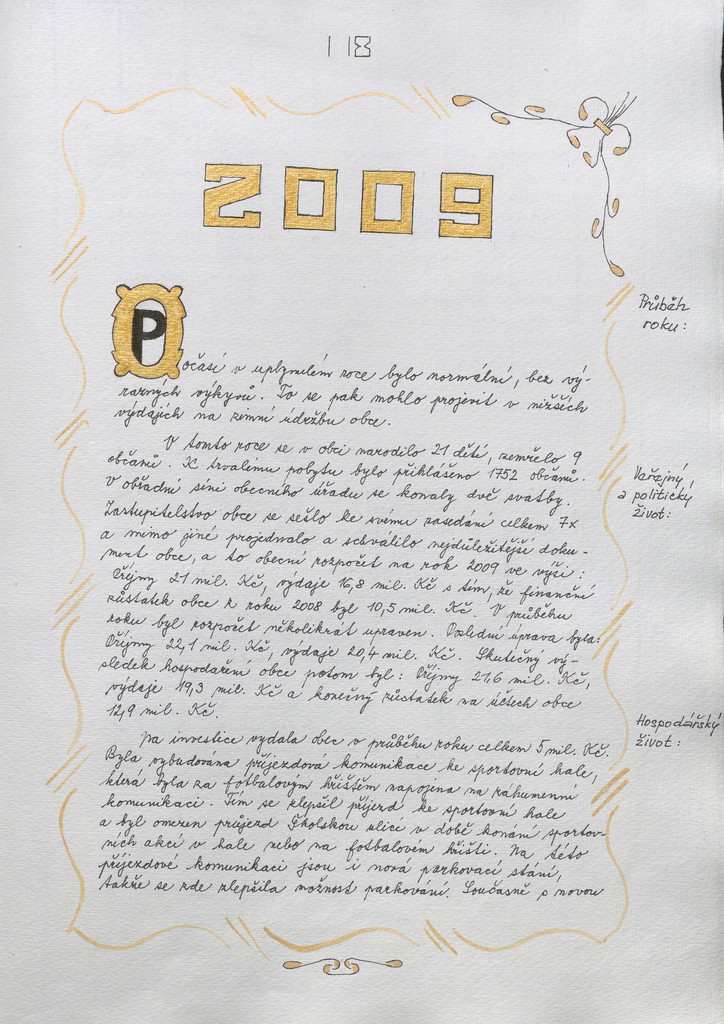 118
2009
Průběh
roku:
Počasí v uplynulém roce bylo normální, bez vý-
razných výkyvů. To se pak mohlo projevit v nižších
výdajích na zimní údržbu obce.
Veřejný
a politický
život:
V tomto roce se v obci narodilo 21 dětí, zemřelo 9
občanů. K trvalému pobytu bylo přihlášeno 1752 občanů.
V obřadní síni obecního úřadu se konaly dvě svatby.
Zastupitelstvo obce se sešlo ke svému zasedání celkem 7x
a mimo jiné projednalo a schválilo nejdůležitější doku-
ment obce, a to obecní rozpočet na rok 2009 ve výši:
Příjmy 21 mil. Kč, výdaje 16,8 mil. Kč s tím, že finanční
zůstatek obce z roku 2008 byl 10,5 mil. Kč. V průběhu
roku byl rozpočet několikrát upraven. Poslední úprava byla:
Příjmy 22,1 mil. Kč, výdaje 20,4 mil. Kč. Skutečný vý-
sledek hospodaření obce potom byl: Příjmy 21,6 mil. Kč,
výdaje 19,3 mil. Kč a konečný zůstatek na účtech obce
12,9 mil. Kč.
Hospodářský
život:
Na investice vydala obec v průběhu roku celkem 5 mil. Kč.
Byla vybudována příjezdová komunikace ke sportovní hale,
která byla za fotbalovým hřištěm napojena na záhumenní
komunikaci. Tím se zlepšil příjezd ke sportovní hale
a byl omezen průjezd Školskou ulicí v době konání sportov-
ních akcí v hale nebo na fotbalovém hřišti. Na této
příjezdové komunikaci jsou i nová parkovací stání,
takže se zde zlepšila možnost parkování. Současně s novou